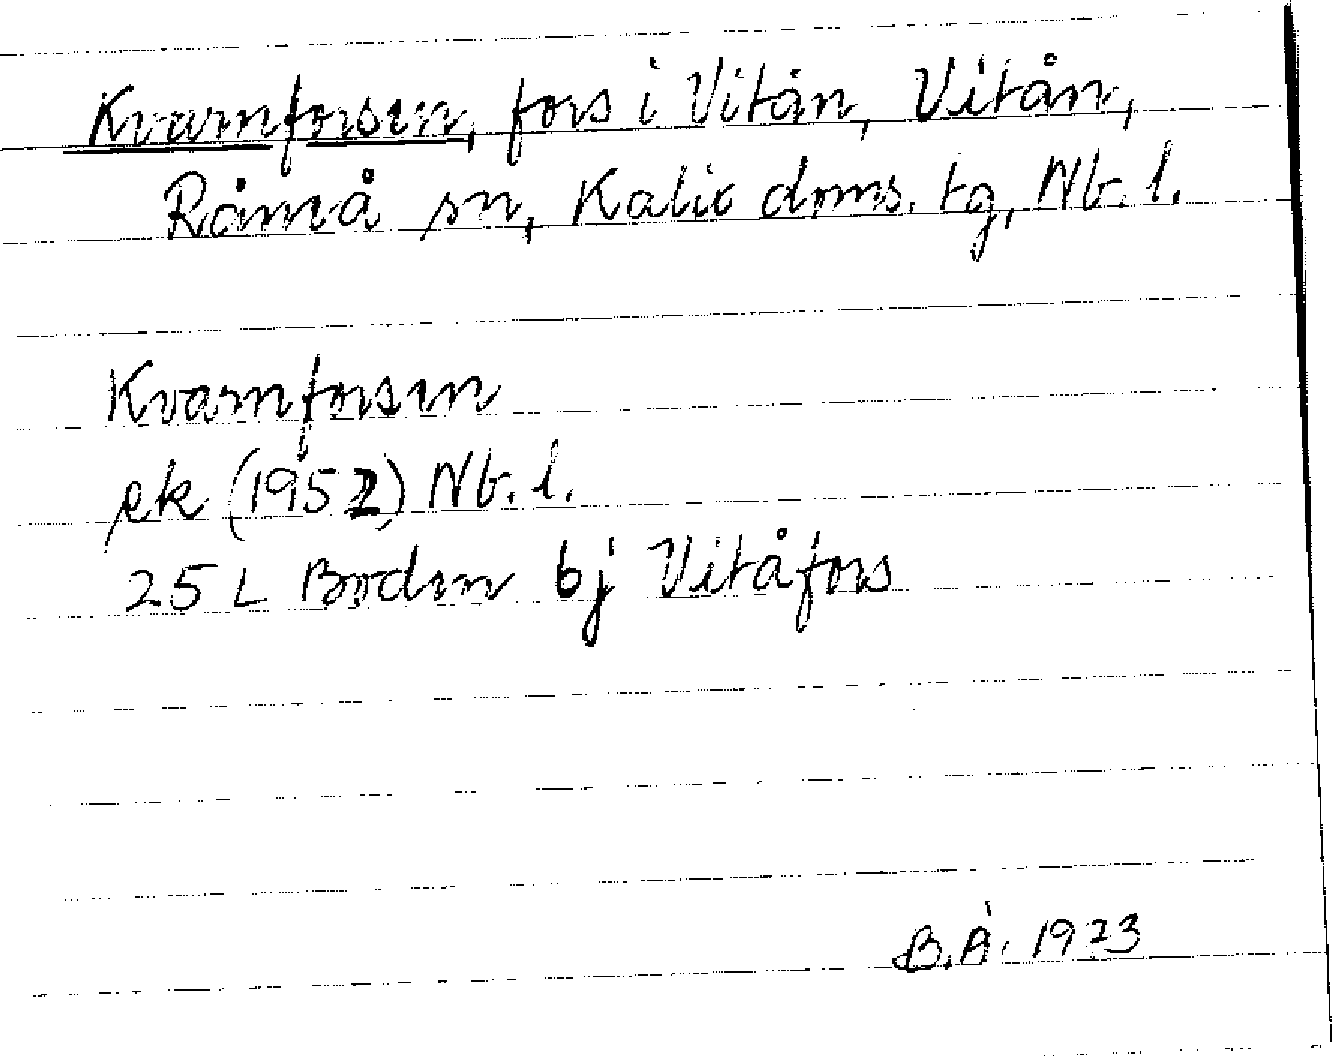 Kvarnforsen, fors i Vitån, Vitån,
Råneå sn, Kalix doms. tg, Nb. l.
Kvarnforsen
ek (1952) Nb. l.
25 L Boden bj Vitåfors
B.Å. 1973